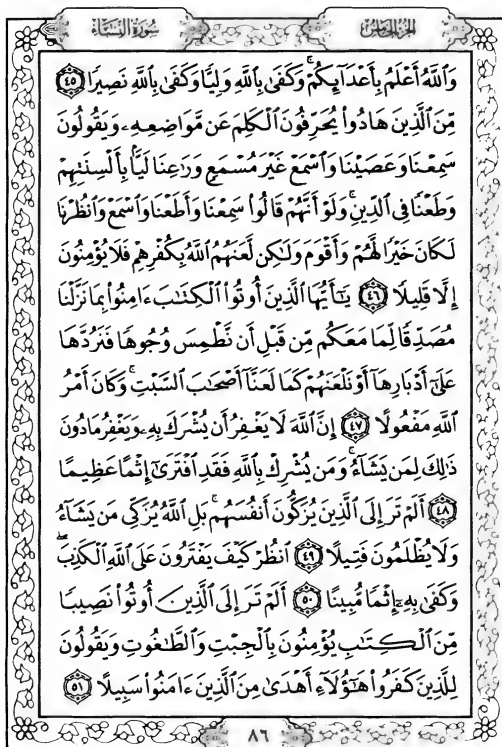 سُورَةُ النِّسَاءِ
الجُزْءُ الخَامِسُ
وَاللَّهُ أَعْلَمُ بِأَعْدَائِكُمْ ۚ وَكَفَىٰ بِاللَّهِ وَلِيًّا وَكَفَىٰ بِاللَّهِ نَصِيرًا ٤٥
مِّنَ الَّذِينَ هَادُوا يُحَرِّفُونَ الْكَلِمَ عَن مَّوَاضِعِهِ وَيَقُولُونَ
سَمِعْنَا وَعَصَيْنَا وَاسْمَعْ غَيْرَ مُسْمَعٍ وَرَاعِنَا لَيًّا بِأَلْسِنَتِهِمْ
وَطَعْنًا فِي الدِّينِ ۚ وَلَوْ أَنَّهُمْ قَالُوا سَمِعْنَا وَأَطَعْنَا وَاسْمَعْ وَانظُرْنَا
لَكَانَ خَيْرًا لَّهُمْ وَأَقْوَمَ وَلَٰكِن لَّعَنَهُمُ اللَّهُ بِكُفْرِهِمْ فَلَا يُؤْمِنُونَ
إِلَّا قَلِيلًا ٤٦ يَا أَيُّهَا الَّذِينَ أُوتُوا الْكِتَابَ ءَامِنُوا بِمَا نَزَّلْنَا
مُصَدِّقًا لِّمَا مَعَكُم مِّن قَبْلِ أَن نَّطْمِسَ وُجُوهًا فَنَرُدَّهَا
عَلَىٰ أَدْبَارِهَا أَوْ نَلْعَنَهُمْ كَمَا لَعَنَّا أَصْحَابَ السَّبْتِ ۚ وَكَانَ أَمْرُ
اللَّهِ مَفْعُولًا ٤٧ إِنَّ اللَّهَ لَا يَغْفِرُ أَن يُشْرَكَ بِهِ وَيَغْفِرُ مَا دُونَ
ذَٰلِكَ لِمَن يَشَاءُ ۚ وَمَن يُشْرِكْ بِاللَّهِ فَقَدِ افْتَرَىٰ إِثْمًا عَظِيمًا
٤٨ أَلَمْ تَرَ إِلَى الَّذِينَ يُزَكُّونَ أَنفُسَهُم ۚ بَلِ اللَّهُ يُزَكِّي مَن يَشَاءُ
وَلَا يُظْلَمُونَ فَتِيلًا ٤٩ انظُرْ كَيْفَ يَفْتَرُونَ عَلَى اللَّهِ الْكَذِبَ ۖ
وَكَفَىٰ بِهِ إِثْمًا مُّبِينًا ٥٠ أَلَمْ تَرَ إِلَى الَّذِينَ أُوتُوا نَصِيبًا
مِّنَ الْكِتَابِ يُؤْمِنُونَ بِالْجِبْتِ وَالطَّاغُوتِ وَيَقُولُونَ
لِلَّذِينَ كَفَرُوا هَٰؤُلَاءِ أَهْدَىٰ مِنَ الَّذِينَ ءَامَنُوا سَبِيلًا ٥١
٨٦